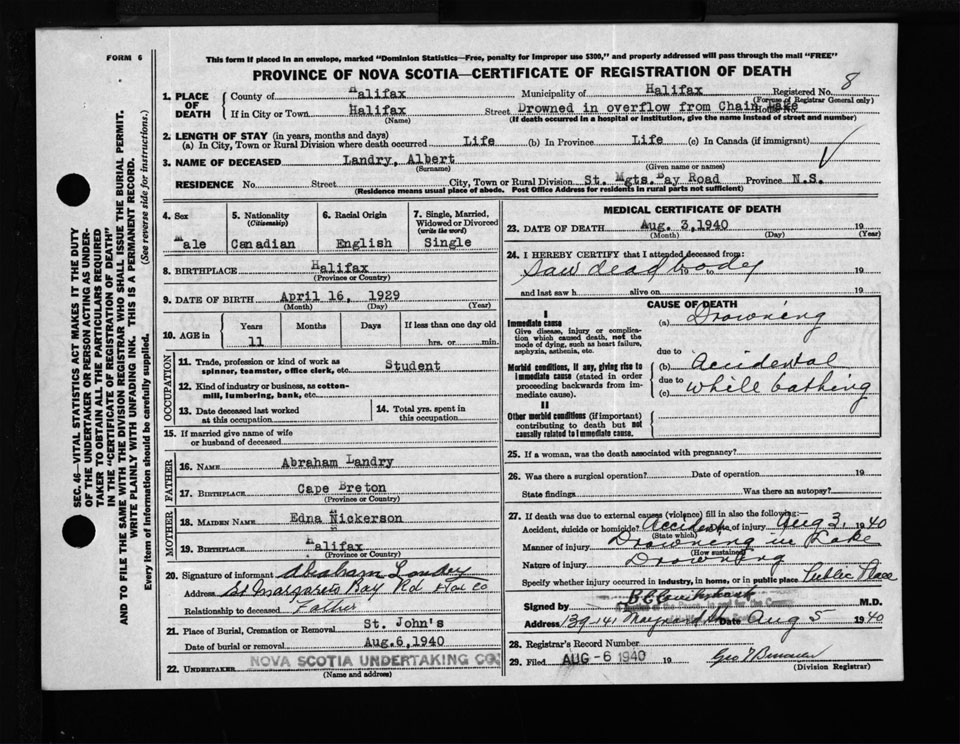 FORM 6
This form if placed in an envelope, marked "Dominion Statistics—Free, penalty for improper use $300," and properly addressed will pass through the mail "FREE"
PROVINCE OF NOVA SCOTIA—CERTIFICATE OF REGISTRATION OF DEATH
8
1. PLACE OF DEATH County of Halifax Municipality of Halifax Registered No.
(For use of Registrar General only)
If in City or Town Halifax Street Drowned in overflow from Chain Lake House No.
(Name) (If death occurred in a hospital or institution, give the name instead of street and number)
2. LENGTH OF STAY (in years, months and days)
(a) In City, Town or Rural Division where death occurred Life (b) In Province Life (c) In Canada (if immigrant)
3. NAME OF DECEASED Landry, Albert
(Surname) (Given name or names)
RESIDENCE No. Street City, Town or Rural Division St. Mgts. Bay Road Province N.S.
(Residence means usual place of abode. Post Office Address for residents in rural parts not sufficient)
4. Sex Male
5. Nationality (Citizenship) Canadian
6. Racial Origin English
7. Single, Married, Widowed or Divorced (write the word) Single
8. BIRTHPLACE Halifax
(Province or Country)
9. DATE OF BIRTH April 16, 1929
(Month) (Day) (Year)
10. AGE in Years Months Days If less than one day old
11 hrs. or min.
OCCUPATION
11. Trade, profession or kind of work as spinner, teamster, office clerk, etc. Student
12. Kind of industry or business, as cotton-mill, lumbering, bank, etc.
13. Date deceased last worked at this occupation
14. Total yrs. spent in this occupation
15. If married give name of wife or husband of deceased
FATHER
16. NAME Abraham Landry
17. BIRTHPLACE Cape Breton
(Province or Country)
MOTHER
18. MAIDEN NAME Edna Nickerson
19. BIRTHPLACE Halifax
(Province or Country)
20. Signature of informant Abraham Landry
Address St Margarets Bay Rd Hfx Co
Relationship to deceased Father
21. Place of Burial, Cremation or Removal St. John's
Date of burial or removal Aug. 6, 1940
22. UNDERTAKER NOVA SCOTIA UNDERTAKING CO
(Name and address)
MEDICAL CERTIFICATE OF DEATH
23. DATE OF DEATH Aug. 3, 1940 19
(Month) (Day) (Year)
24. I HEREBY CERTIFY that I attended deceased from:
Saw dead body 19 to 19
and last saw h alive on 19
CAUSE OF DEATH
I
Immediate cause
Give disease, injury or complication which caused death, not the mode of dying, such as heart failure, asphyxia, asthenia, etc.
(a) Drowning
due to
Morbid conditions, if any, giving rise to immediate cause (stated in order proceeding backwards from immediate cause).
(b) Accidental
due to
(c) while bathing
II
Other morbid conditions (if important) contributing to death but not causally related to immediate cause.
25. If a woman, was the death associated with pregnancy?
26. Was there a surgical operation? Date of operation 19
State findings Was there an autopsy?
27. If death was due to external causes (violence) fill in also the following:—
Accident, suicide or homicide? Accident Date of injury Aug 3, 1940
(State which)
Manner of injury Drowning in Lake
(How sustained)
Nature of injury Drowning
Specify whether injury occurred in industry, in home, or in public place Public Place
Signed by M.D.
Address 139-141 Maynard St Date Aug 5 1940
28. Registrar's Record Number
29. Filed AUG -6 1940 19 Geo
(Division Registrar)
SEC. 46—VITAL STATISTICS ACT MAKES IT THE DUTY
OF THE UNDERTAKER OR PERSON ACTING AS UNDER-
TAKER TO OBTAIN ALL THE PARTICULARS REQUIRED
IN THE "CERTIFICATE OF REGISTRATION OF DEATH"
AND TO FILE THE SAME WITH THE DIVISION REGISTRAR WHO SHALL ISSUE THE BURIAL PERMIT.
WRITE PLAINLY WITH UNFADING INK. THIS IS A PERMANENT RECORD.
Every item of information should be carefully supplied. (See reverse side for instructions.)